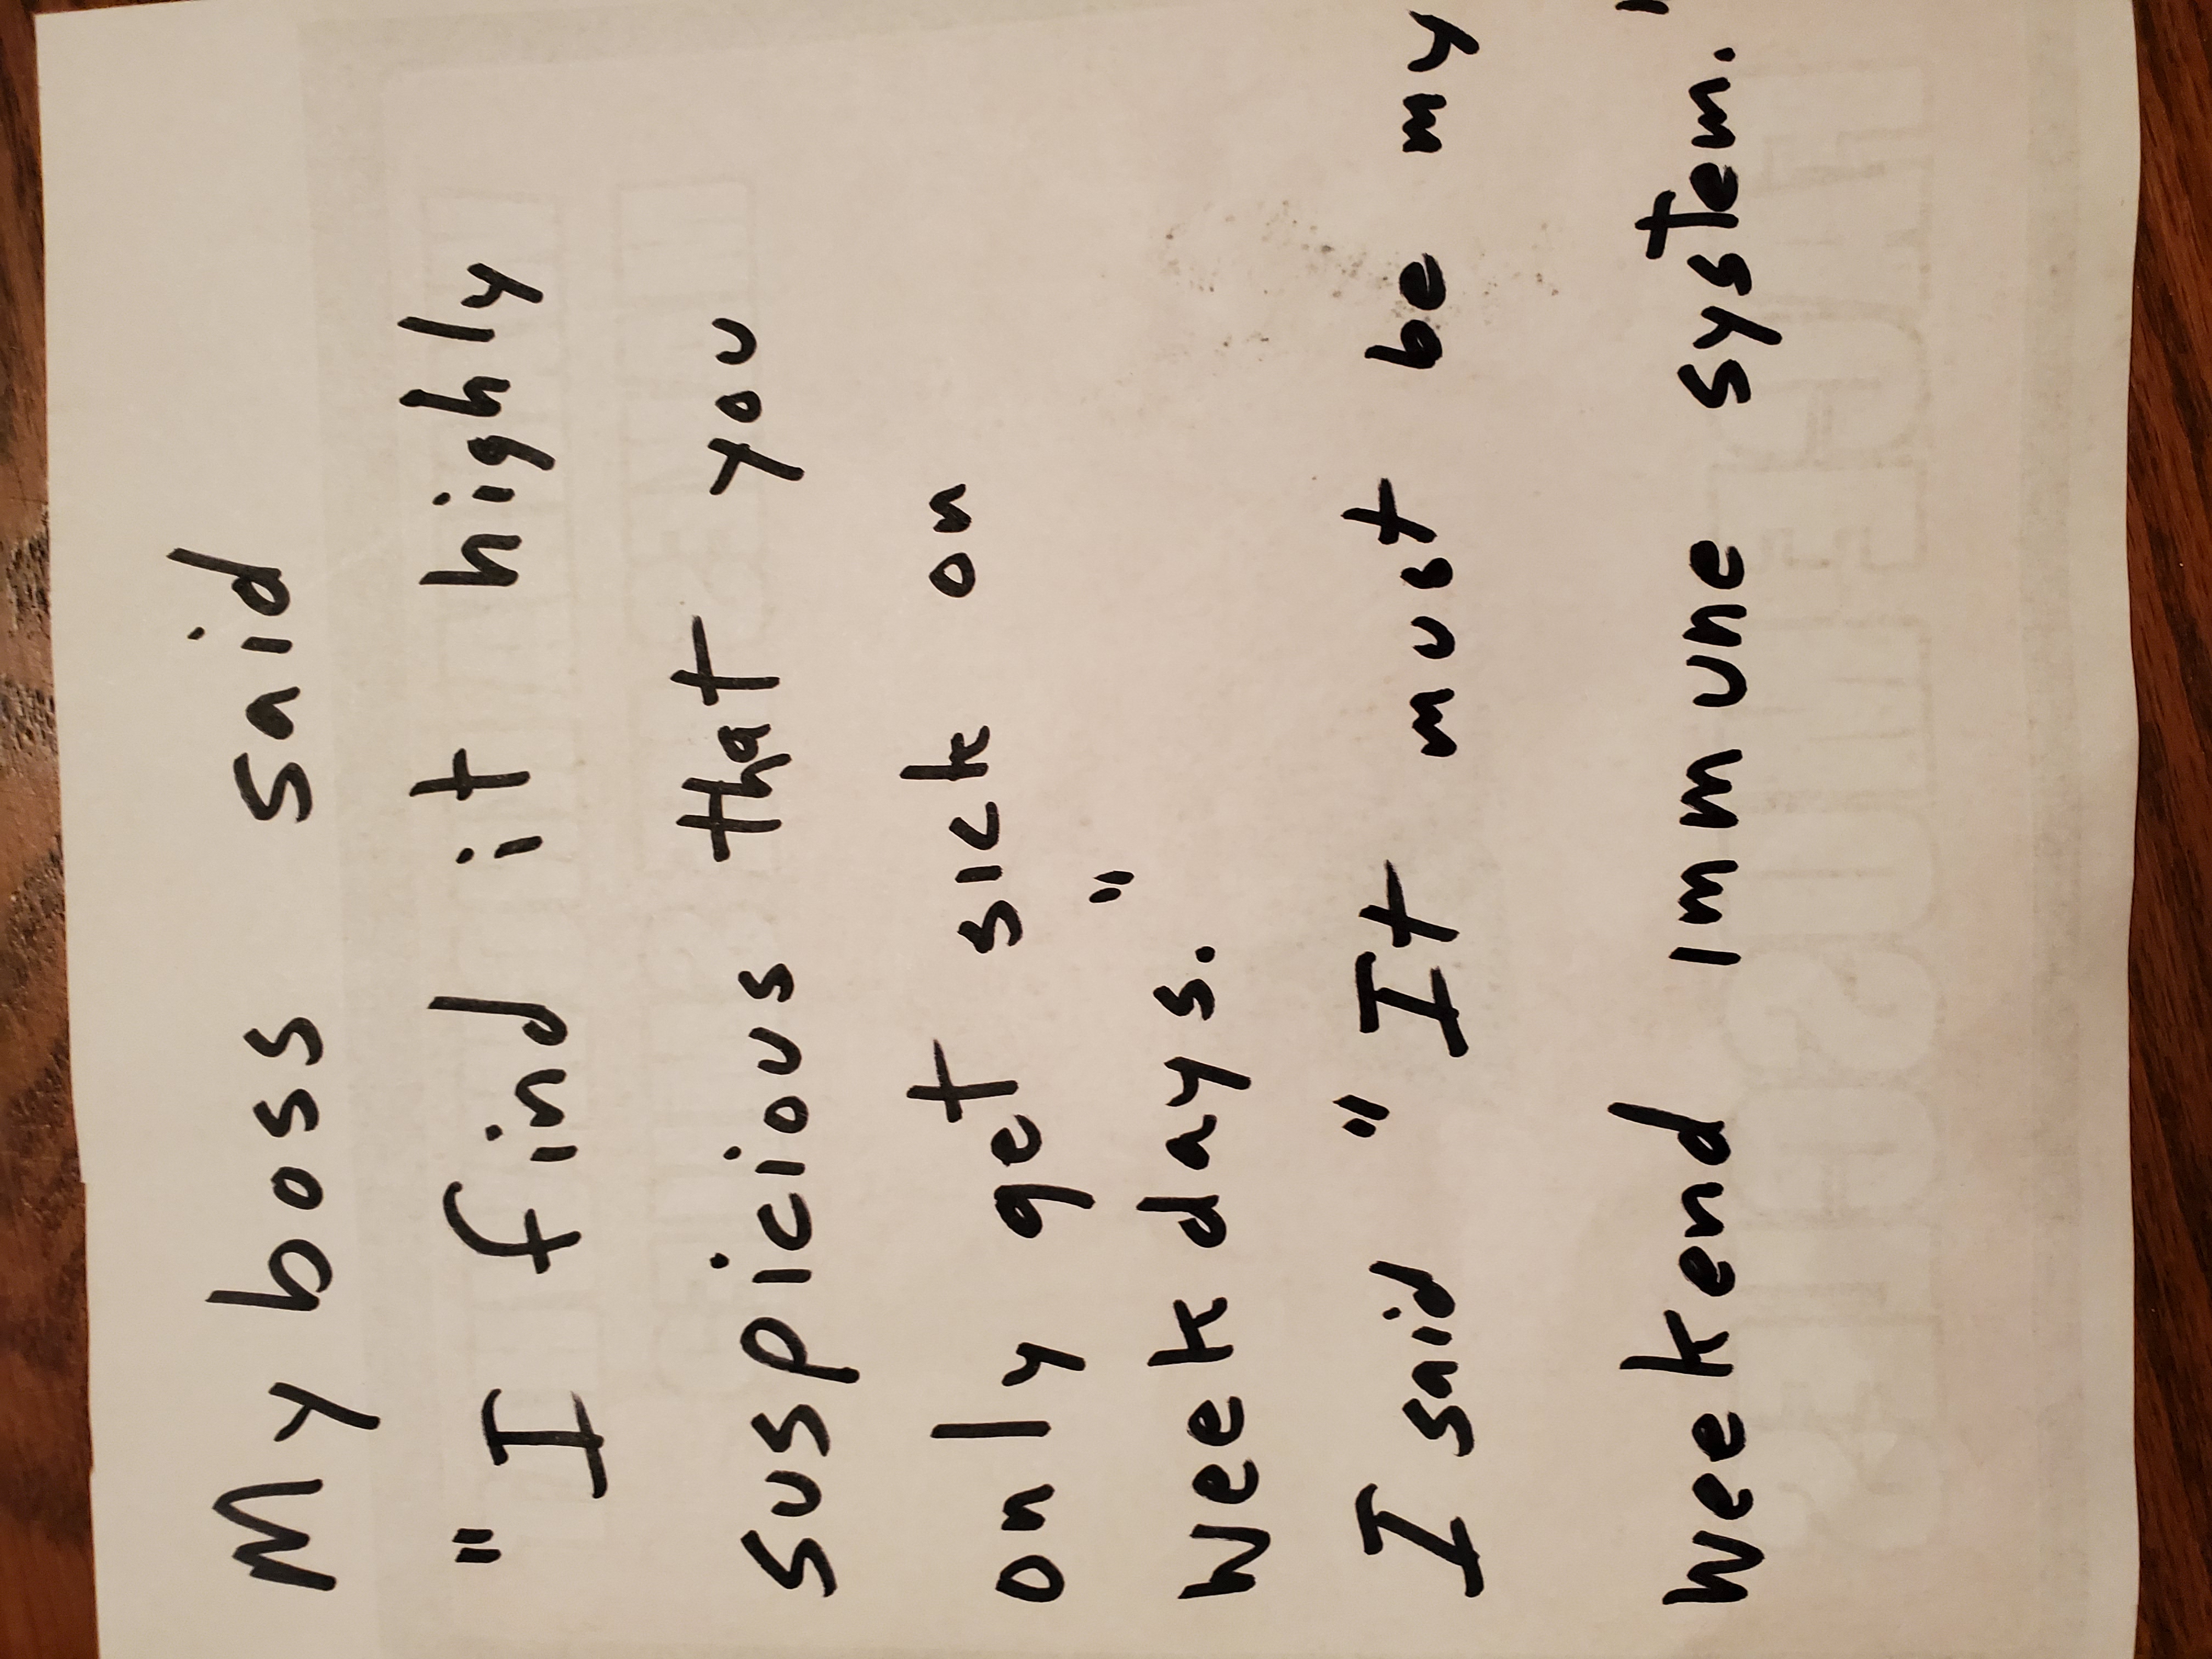 My boss said
"I find it highly
suspicious that you
only get sick on
weekdays."
I said "It must be my
weekend immune system."